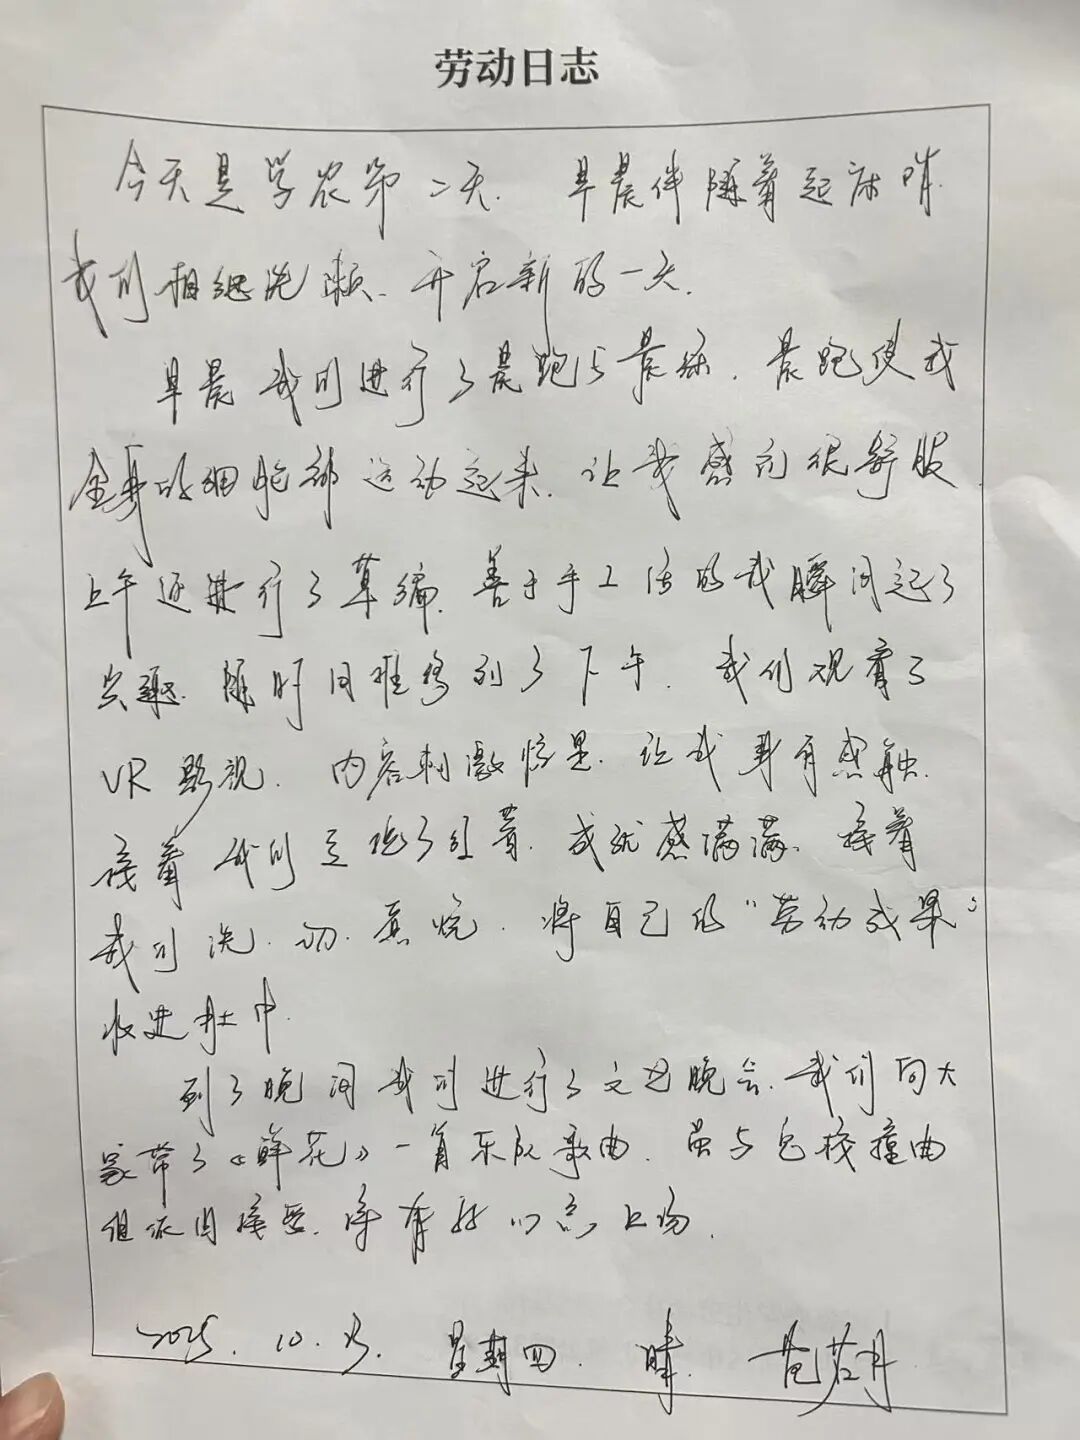 劳动日志
今天是学农第二天. 早晨伴随着起床哨.
我们相继洗漱. 开启新的一天.
早晨我们进行了晨跑与晨练. 晨跑使我
全身的细胞都运动起来. 让我感到很舒服
上午还进行了草编. 善于手工活的我瞬间起了
兴趣. 随时间推移到了下午. 我们观看了
VR影视. 内容刺激惊险. 让我身有感触.
接着我们 了红薯. 成就感满满. 接着
我们洗. 切. 蒸烧. 将自己的"劳动成果"
收进肚中.
到了晚间我们进行了文艺晚会. 我们向大
家带了《鲜花》一首乐队歌曲. 虽与 校撞曲
但依旧 上场.
2025. 10. 星期四. 晴. 若月